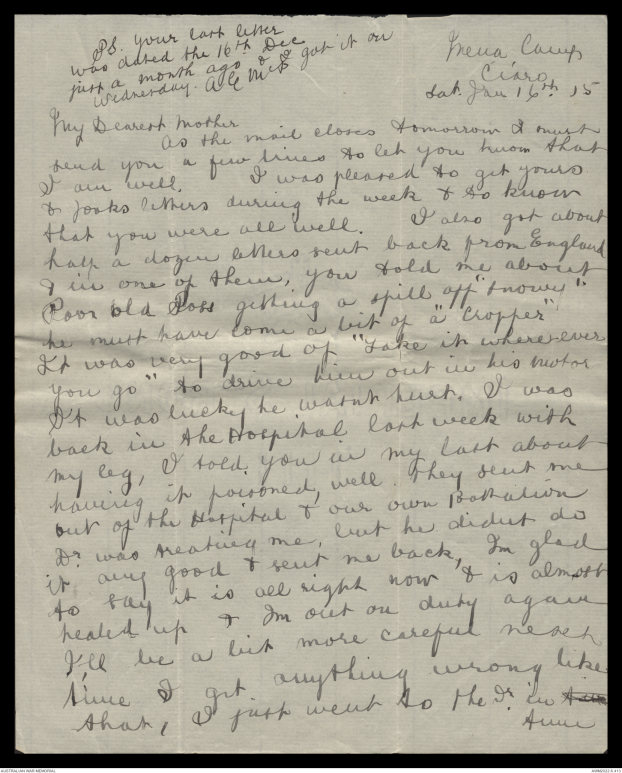 PS. your last letter
was dated the 16th Dec
just a month ago & I got it on
Wednesday. A G McS
Mena Camp
Ciaro
Sat. Jan 16th 15
My Dearest Mother
As the mail closes tomorrow I must
send you a few lines to let you know that
I am well. I was pleased to get yours
& Jocks letters during the week & to know
that you were all well. I also got about
half a dozen letters sent back from England
& in one of them, you told me about
Poor old Poss getting a spill off "Snowy"
he must have come a bit of a "Cropper"
It was very good of "Take it where ever
you go" to drive him out in his Motor
It was lucky he wasnt hurt. I was
back in the Hospital last week with
my leg, I told you in my last about
having it poisoned, well they sent me
out of the Hospital & our own Battalion
Dr was treating me, but he didnt do
it any good & sent me back, Im glad
to say it is all right now & is almost
healed up & Im out on duty again
I'll be a bit more careful next
time I get anything wrong like
that, I just went to the Dr in
time
AUSTRALIAN WAR MEMORIAL